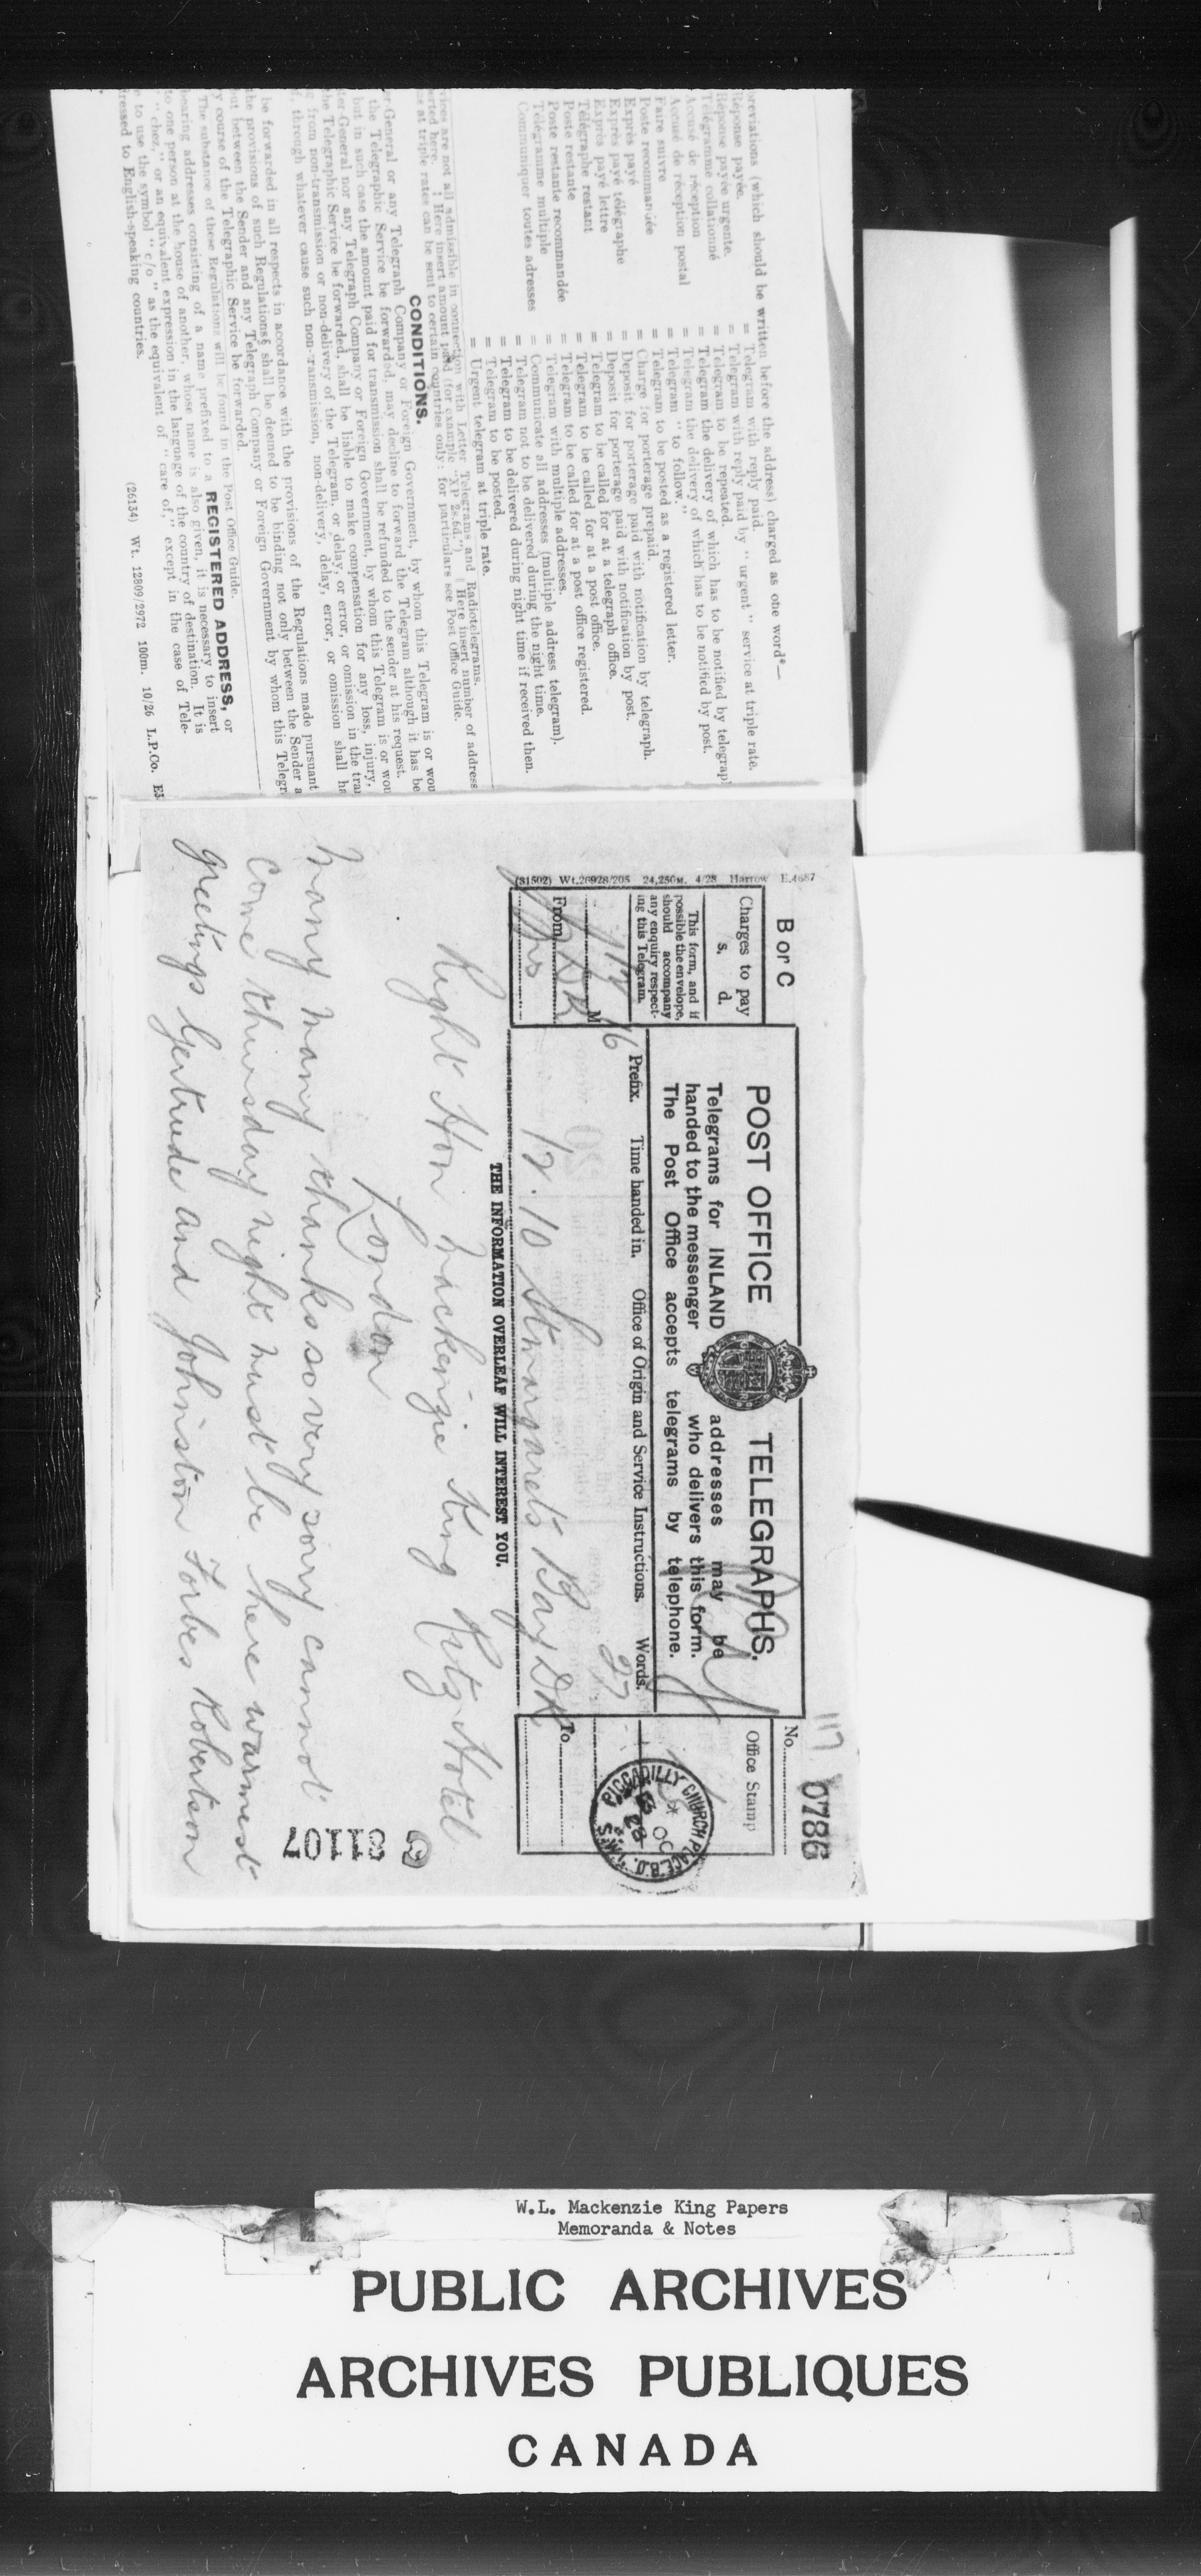 breviations (which should be written before the address) charged as one word*—
Réponse payée. = Telegram with reply paid.
Réponse payée urgente. = Telegram with reply paid by "urgent" service at triple rate.
Télégramme collationné = Telegram to be repeated.
Accusé de réception = Telegram the delivery of which has to be notified by telegraph
Accusé de réception postal = Telegram the delivery of which has to be notified by post.
Faire suivre = Telegram "to follow."
Poste recommandée = Telegram to be posted as a registered letter.
Exprès payé = Charge for porterage prepaid.
Exprès payé télégraphe = Deposit for porterage paid with notification by telegraph.
Exprès payé lettre = Deposit for porterage paid with notification by post.
Télégraphe restant = Telegram to be called for at a telegraph office.
Poste restante = Telegram to be called for at a post office.
Poste restante recommandée = Telegram to be called for at a post office registered.
Télégramme multiple = Telegram with multiple addresses.
Communiquer toutes adresses = Communicate all addresses (multiple address telegram).
= Telegram not to be delivered during the night time.
= Telegram to be delivered during night time if received then.
= Telegram to be posted.
= Urgent telegram at triple rate.
vices are not all admissible in connection with Letter Telegrams and Radiotelegrams.
erted here. Here insert amount paid (for example "XP 2s.6d.") Here insert number of address
s at triple rates can be sent to certain countries only: for particulars see Post Office Guide.
CONDITIONS.
er-General or any Telegraph Company or Foreign Government, by whom this Telegram is or wou
the Telegraphic Service be forwarded, may decline to forward the Telegram although it has be
but in such case the amount paid for transmission shall be refunded to the sender at his request.
ter-General nor any Telegraph Company or Foreign Government, by whom this Telegram is or wou
the Telegraphic Service be forwarded, shall be liable to make compensation for any loss, injury,
g from non-transmission or non-delivery of the Telegram, or delay, or error, or omission in the tran
f, through whatever cause such non-transmission, non-delivery, delay, error, or omission shall ha
be forwarded in all respects in accordance with the provisions of the Regulations made pursuant
the provisions of such Regulations§ shall be deemed to be binding not only between the Sender a
but between the Sender and any Telegraph Company or Foreign Government by whom this Telegr
y course of the Telegraphic Service be forwarded.
The substance of these Regulations will be found in the Post Office Guide.
bearing addresses consisting of a name prefixed to a REGISTERED ADDRESS, or
to one person at the house of another, whose name is also given, it is necessary to insert
" chez," or an equivalent expression in the language of the country of destination. It is
e to use the symbol "c/o" as the equivalent of "care of," except in the case of Tele-
ressed to English-speaking countries.
(26134) Wt. 12809/2972 100m. 10/26 L.P.Co. E3
(31502) Wt.26928/205 24,250M. 4/28 Harrow E.4687
B or C
Charges to pay
s. d.
This form, and if
possible the envelope,
should accompany
any enquiry respect-
ing this Telegram.
M
From
POST OFFICE TELEGRAPHS.
Telegrams for INLAND addresses may be
handed to the messenger who delivers this form.
The Post Office accepts telegrams by telephone.
Prefix. Time handed in. Office of Origin and Service Instructions. Words.
16 12.10 St margarets Bay DK 27
117 0786
No.
Office Stamp
PICCADILLY CHURCH PLACE B.O. S.W.1
OC 28
To
THE INFORMATION OVERLEAF WILL INTEREST YOU.
Right Hon Mackenzie King Ritz Hotel
London
Many many thanks so very sorry cannot
come thursday night must be here warmest
greetings Gertrude and Johnston Forbes Robertson
W.L. Mackenzie King Papers
Memoranda & Notes
PUBLIC ARCHIVES
ARCHIVES PUBLIQUES
CANADA